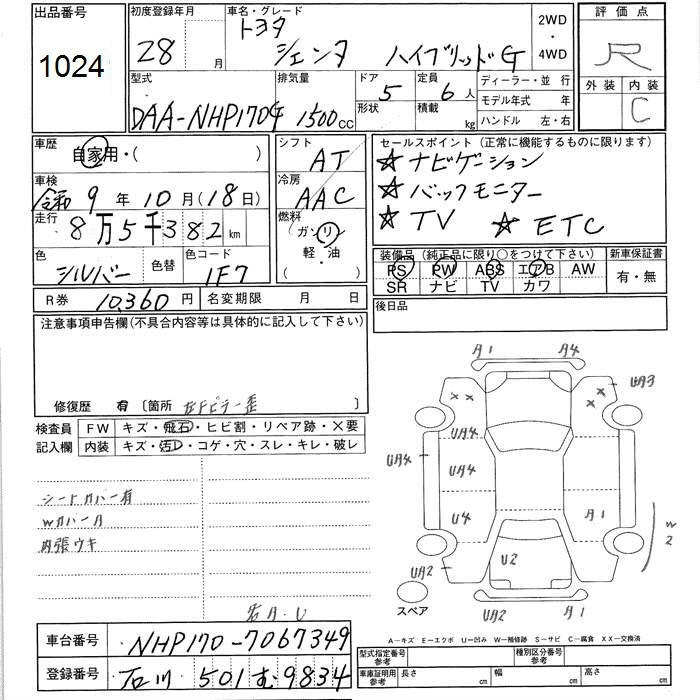 出品番号
1024
初度登録年月
28 月
車名・グレード
トヨタ シエンタ ハイブリッドG
2WD
・
4WD
評価点
R
外装 内装
C
型式
DAA-NHP170G
排気量
1500 CC
ドア
5
形状
定員
6 人
積載
kg
ディーラー・並行
モデル年式 年
ハンドル 左・右
車歴
自家用・( )
車検
令和 9 年 10 月 (18 日)
走行
8万5千382 km
色
シルバー
色替
色コード
1F7
シフト
AT
冷房
AAC
燃料
ガソリン
軽・油
( )
セールスポイント(正常に機能するものに限ります)
☆ ナビゲーション
☆ バックモニター
☆ TV ☆ ETC
装備品(純正品に限り○をつけて下さい)
PS PW ABS エアB AW
SR ナビ TV カワ
新車保証書
有・無
R券 10,360 円
名変期限 月 日
後日品
注意事項申告欄(不具合内容等は具体的に記入して下さい)
修復歴 有 〔箇所
検査員
記入欄
FW キズ・飛石・ヒビ割・リペア跡・×要
内装 キズ・汚れ・コゲ・穴・スレ・キレ・破レ
シートカバー有
Wカバー有
内張ウキ
A1 A4
UA3
UA4
UA4
UA4
U4
A1
W2
U2
UA2 UA2
UA2 A1
スペア
A-キズ E-エクボ U-凹み W-補修跡 S-サビ C-腐食 XX-交換済
車台番号
NHP170-7067349
登録番号
石川 501 む 9834
型式指定番号
参考
種別区分番号
参考
車庫証明用
参考
長さ cm
幅 cm
高さ cm